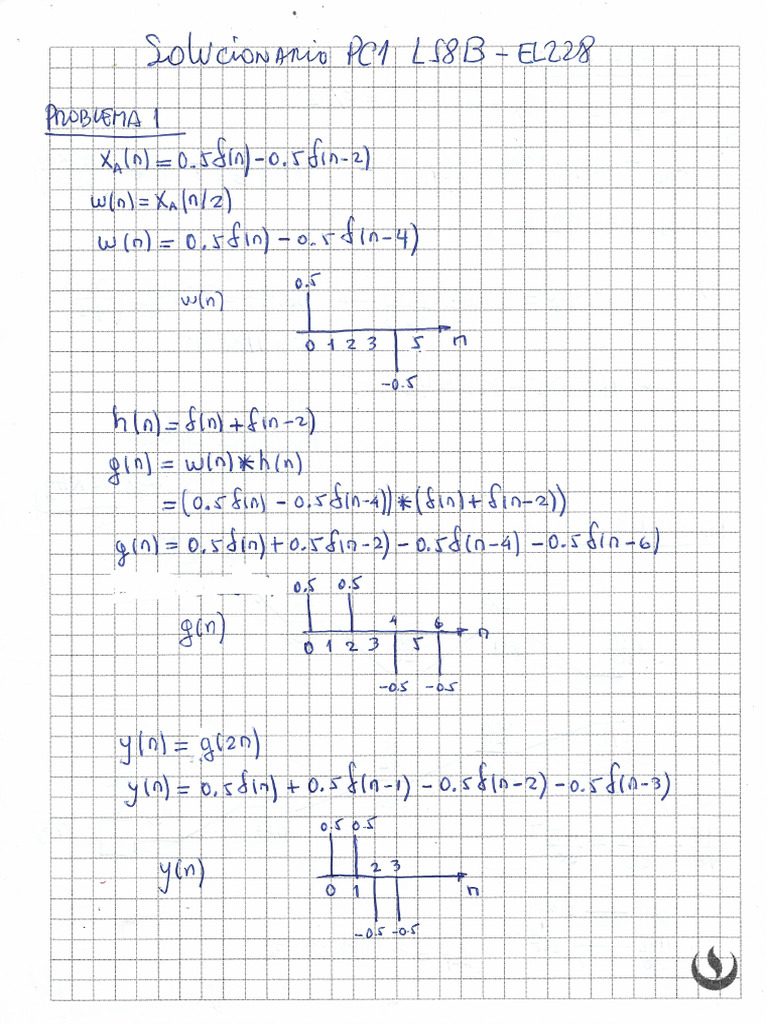 SOLUCIONARIO PC1 LS8B - EL228
PROBLEMA 1
x_A(n) = 0.5δ(n) - 0.5δ(n-2)
w(n) = x_A(n/2)
w(n) = 0.5δ(n) - 0.5δ(n-4)
0.5
w(n)
0 1 2 3 5 n
-0.5
h(n) = δ(n) + δ(n-2)
g(n) = w(n) * h(n)
= (0.5δ(n) - 0.5δ(n-4)) * (δ(n) + δ(n-2))
g(n) = 0.5δ(n) + 0.5δ(n-2) - 0.5δ(n-4) - 0.5δ(n-6)
0.5 0.5
4 6
g(n)
n
0 1 2 3 5
-0.5 -0.5
y(n) = g(2n)
y(n) = 0.5δ(n) + 0.5δ(n-1) - 0.5δ(n-2) - 0.5δ(n-3)
0.5 0.5
y(n)
2 3
0 1 n
-0.5 -0.5